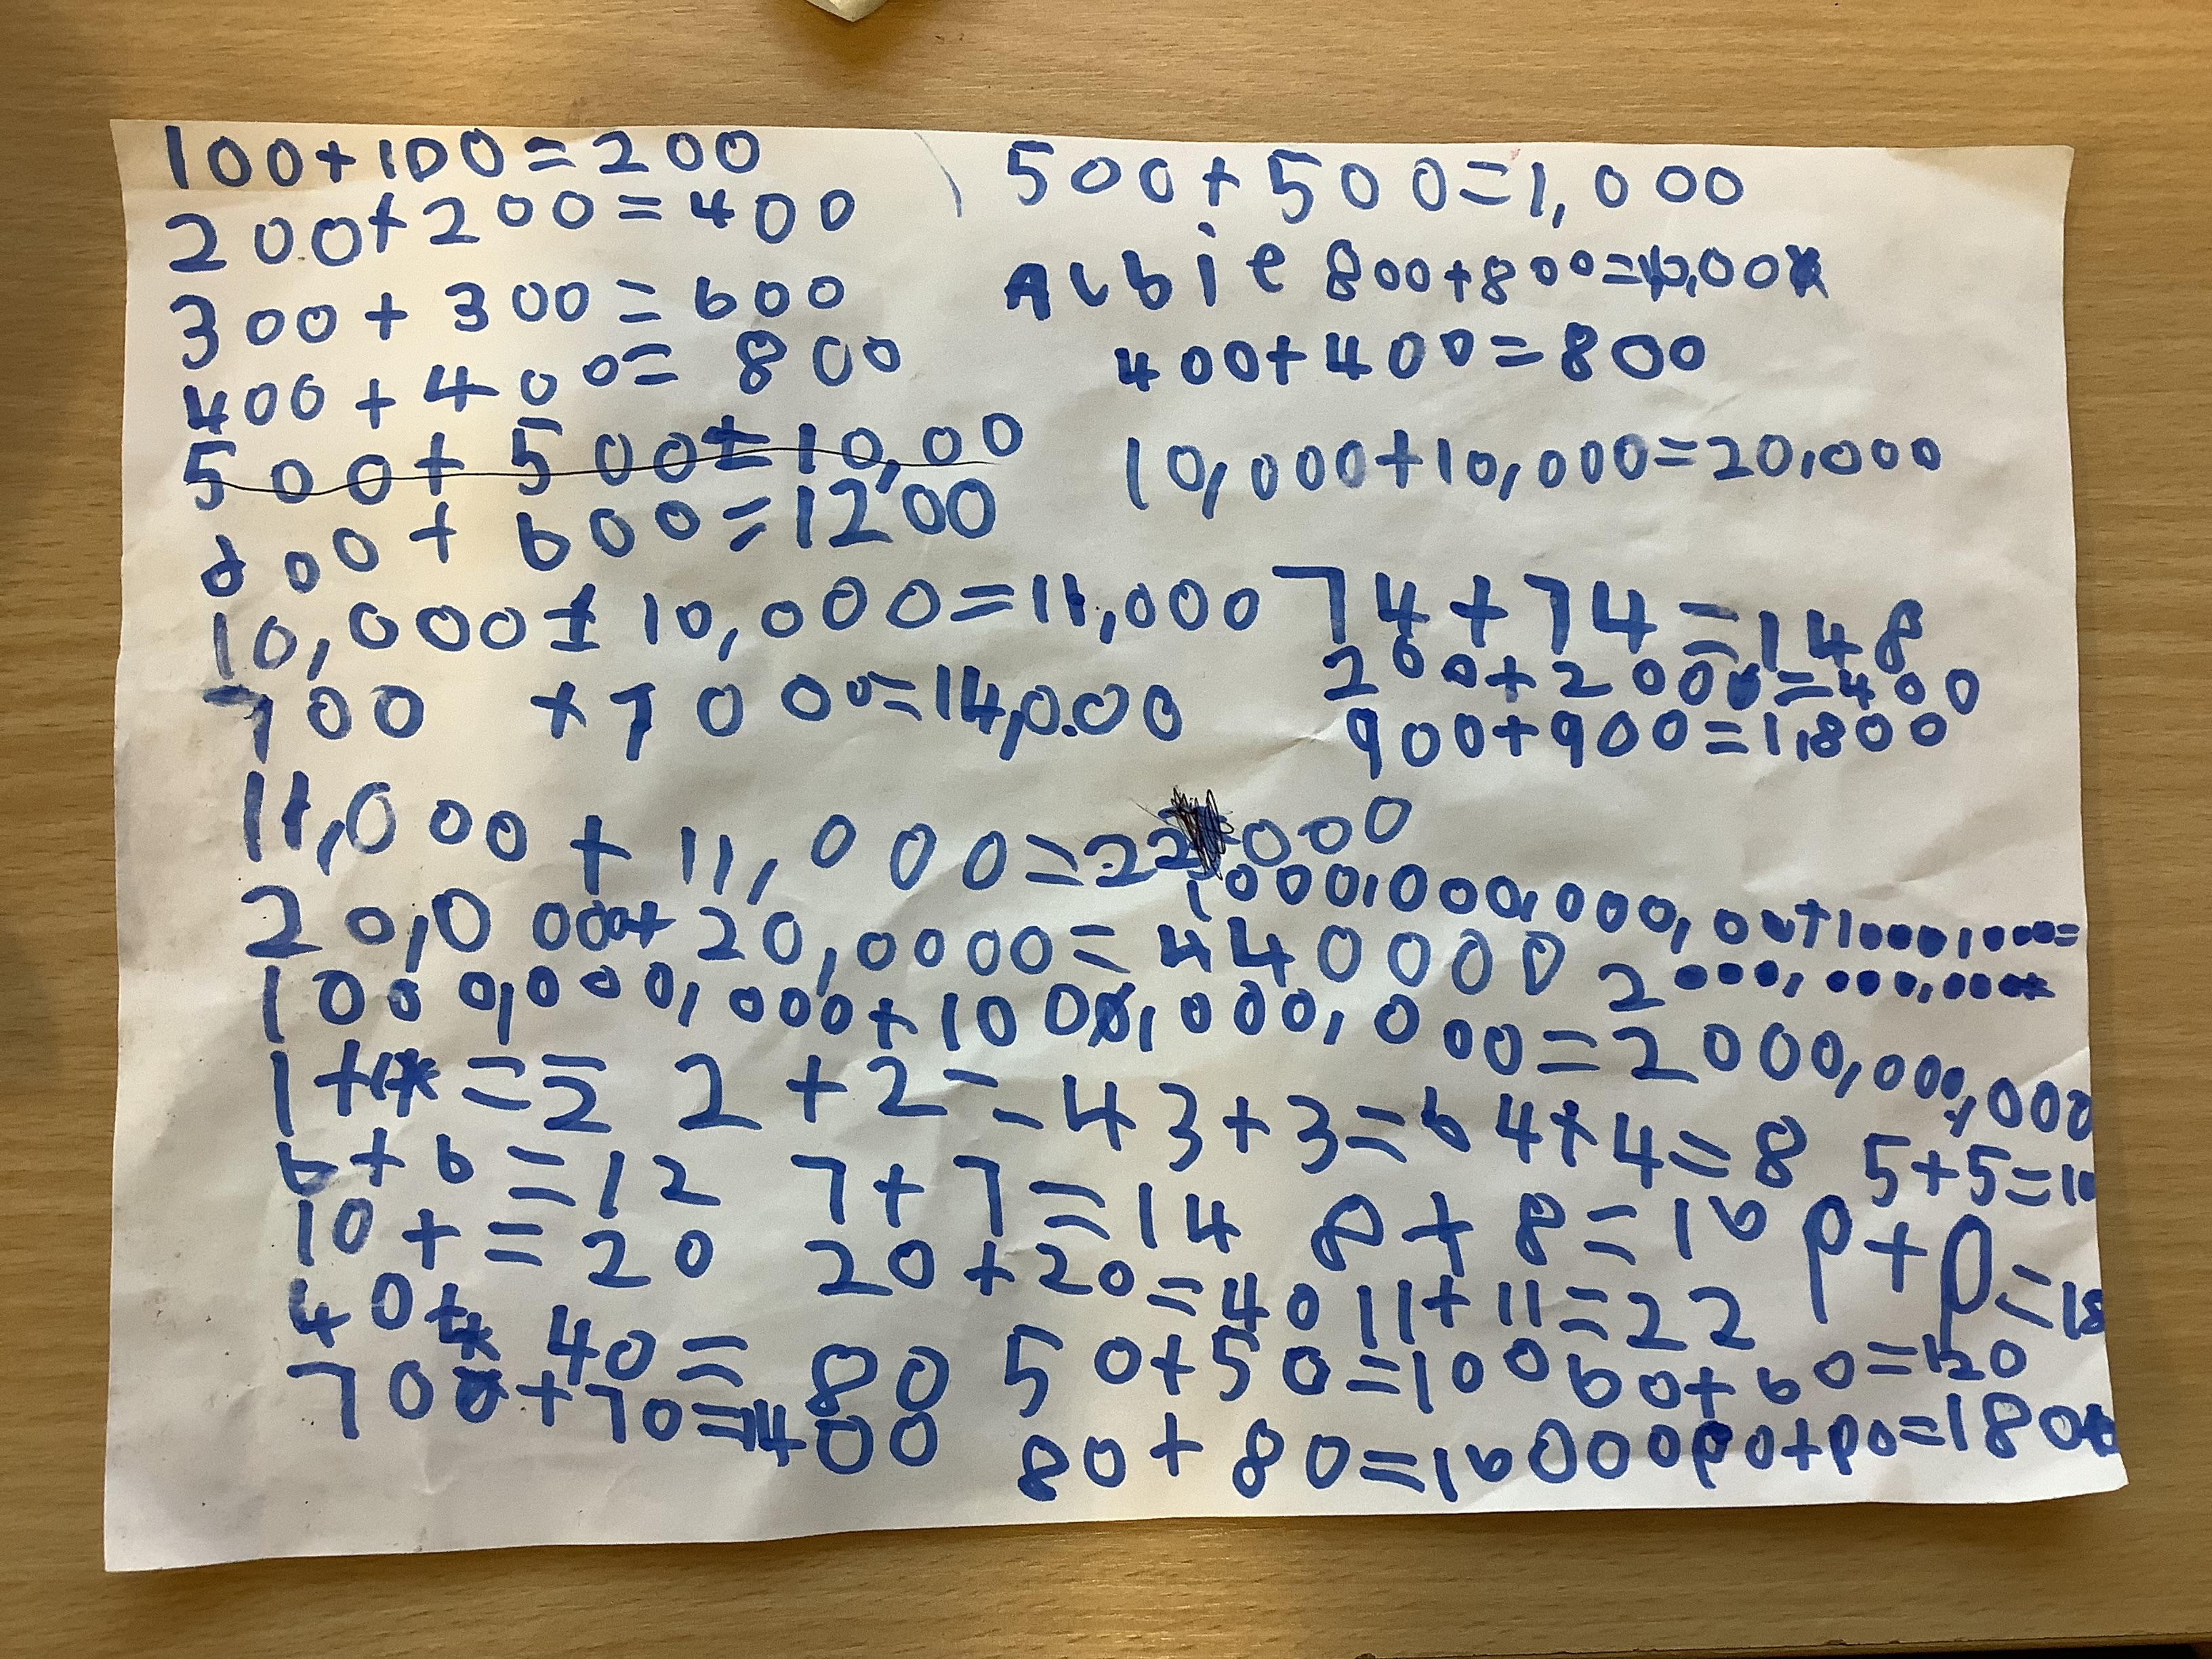 100+100=200
200+200=400
300+300=600
400+400=800
500+500=10,00
600+600=1200
10,000+10,000=11,000
700 +700=14,0.00
500+500=1,000
Albie 800+800=
400+400=800
10,000+10,000=20,000
74+74=148
200+200=400
900+900=1,800
11,000+11,000=22 000
20,0000+20,0000=440000
1000,000,000,
2000,000,000
1000,000,000+1000,000,000=2000,000,000
1+1=2 2+2=4 3+3=6 4+4=8 5+5=10
6+6=12 7+7=14 8+8=16 9+9=18
10+=20 20+20=40 11+11=22
40+40=80 50+50=100 60+60=120
700+70=1400 80+80=16000 90+90=180